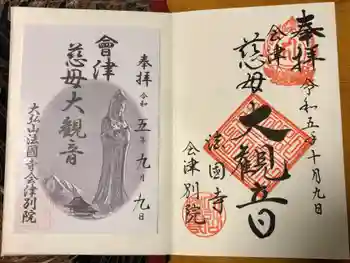 奉拝
令和五年九月九日
會津
慈母大観音
大弘山法國寺会津別院
奉拝
令和五年十月九日
会津
慈母大観音
法國寺
会津別院